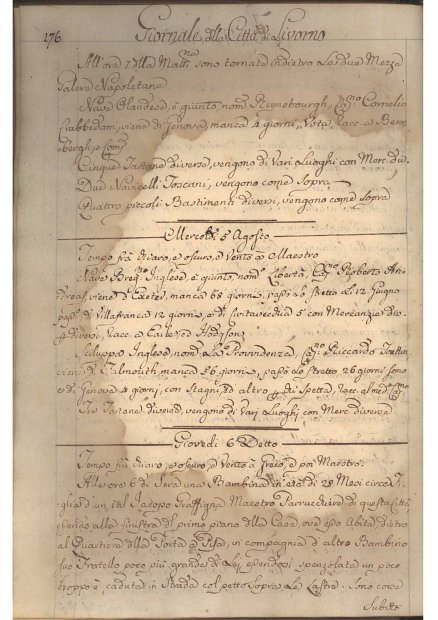 276 Giornale della Città di Livorno
All'ora 7 della Matt.na sono tornate indietro le due Mezze
Galere Napoletane
Nave Olandese, è giunto, nom. Reynobourgh, Cap.no Cornelio
viene di Genova, manca 4 giorni, Vota, racc. a
bergh, e Comp.
Cinque Tartane diverse, vengono di Vari Luoghi con Merc. div.
Due Navicelli Toscani, vengono come Sopra
Quattro piccoli Bastimenti diversi, vengono come Sopra
Mercoldì 5 Agosto
Tempo frà chiaro, e oscuro, e Vento a Maestro
Nave Inglese, è giunto, nom. Libertà, Cap. Roberto An-
dreas, viene d'Exeter, manca 68 giorni, passò lo Stretto li 12 Giugno
di Villafranca 12 giorni, e di Civitavecchia 5 con Mercanzie di
racc. a Earle, e Hodgson
Scaluppa Inglese, nom. La Providenza, Cap. Riccardo
viene di Falmouth, manca 56 giorni, passò lo Stretto 26 giorni sono
e di Genova 4 giorni, con Stagni, ed altro a chi Spetta, racc. al med. Cap.no
Tre Tartane diverse, vengono di Vari Luoghi con Merc. diverse
Giovedì 6 Detto
Tempo frà chiaro, e oscuro, e Vento à Greco, e poi Maestro.
Alle ore 6 di Sera una Bambina in età di 28 Mesi circa Fi-
glia d'un tal Jacopo Graffigna Maestro Parrucchiere di questa Città
essendo alla finestra del primo piano della Casa, ove esso Abita dietro
al Quartiere della Porta a Pisa, in compagnia d'altro Bambino
suo Fratello poco più grande di Lei, essendosi spenzolata un poco
troppo è caduta in Strada col petto Sopra le Lastre. Sono corsi
Subito